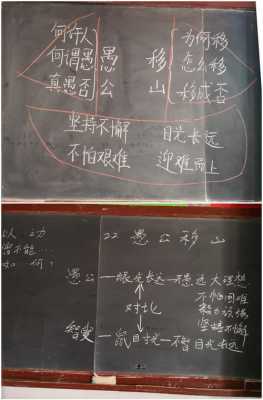 何许人 愚 移 为何移
何谓愚 怎么移
真愚否 公 山 移成否
坚持不懈 目光长远
不怕艰难 迎难而上
22 愚公移山
以 动
曾不能…
如 何?
愚公 — 眼光长远 — 远大理想
不怕困难
努力
坚持不懈
对比
智叟 — 鼠目寸光 — 不智 目光长远